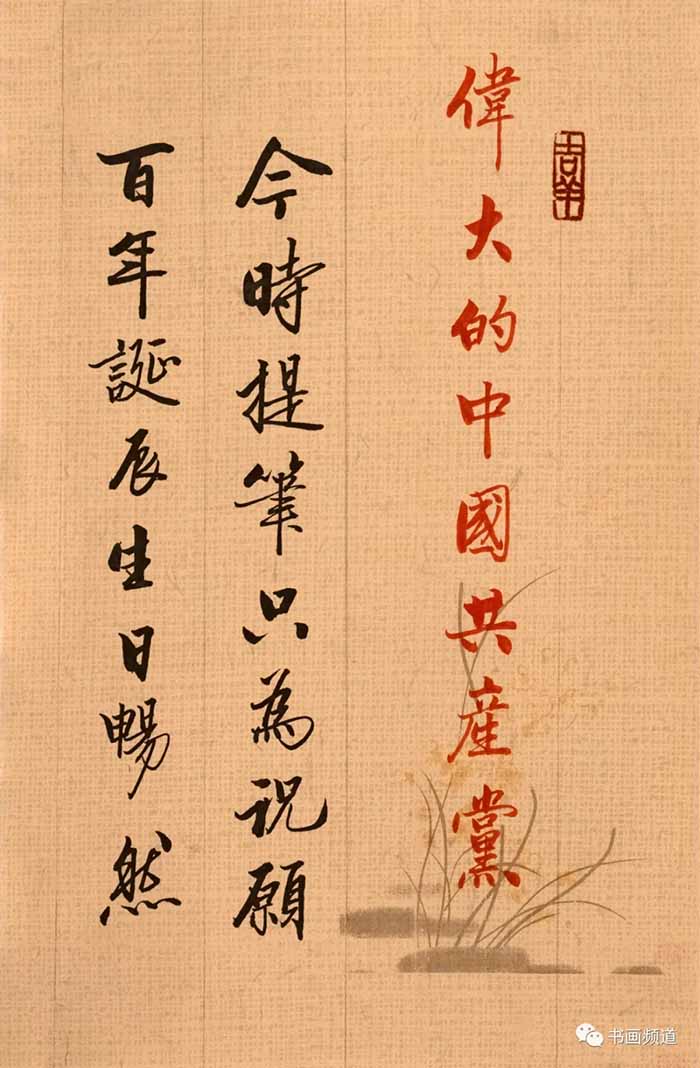 偉大的中國共産黨
今時提筆只為祝願
百年誕辰生日暢然
书画频道